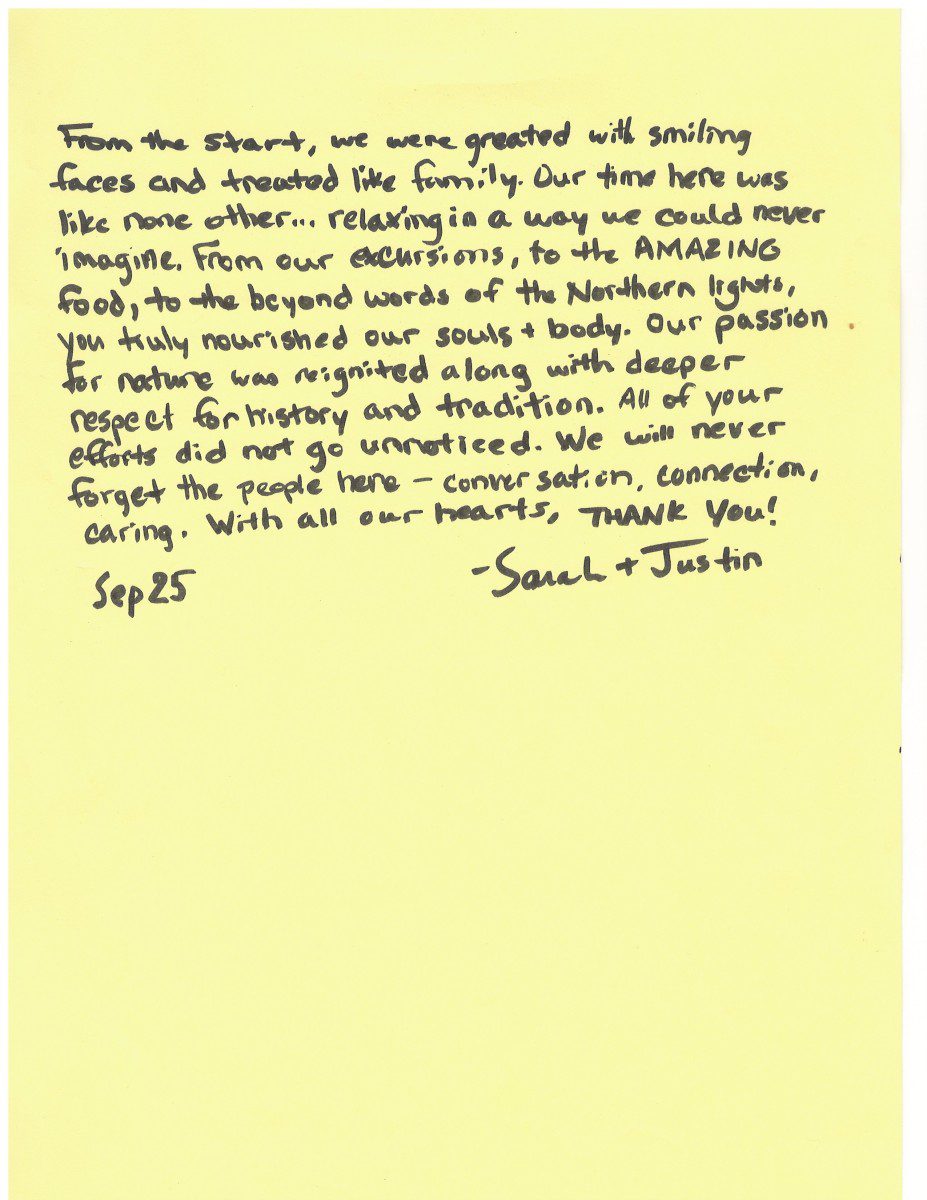 From the start, we were greated with smiling
faces and treated like family. Our time here was
like none other... relaxing in a way we could never
imagine. From our excursions, to the AMAZING
food, to the beyond words of the Northern lights,
you truly nourished our souls + body. Our passion
for nature was reignited along with deeper
respect for history and tradition. All of your
efforts did not go unnoticed. We will never
forget the people here - conversation, connection,
caring. With all our hearts, THANK YOU!
Sep 25 - Sarah + Justin